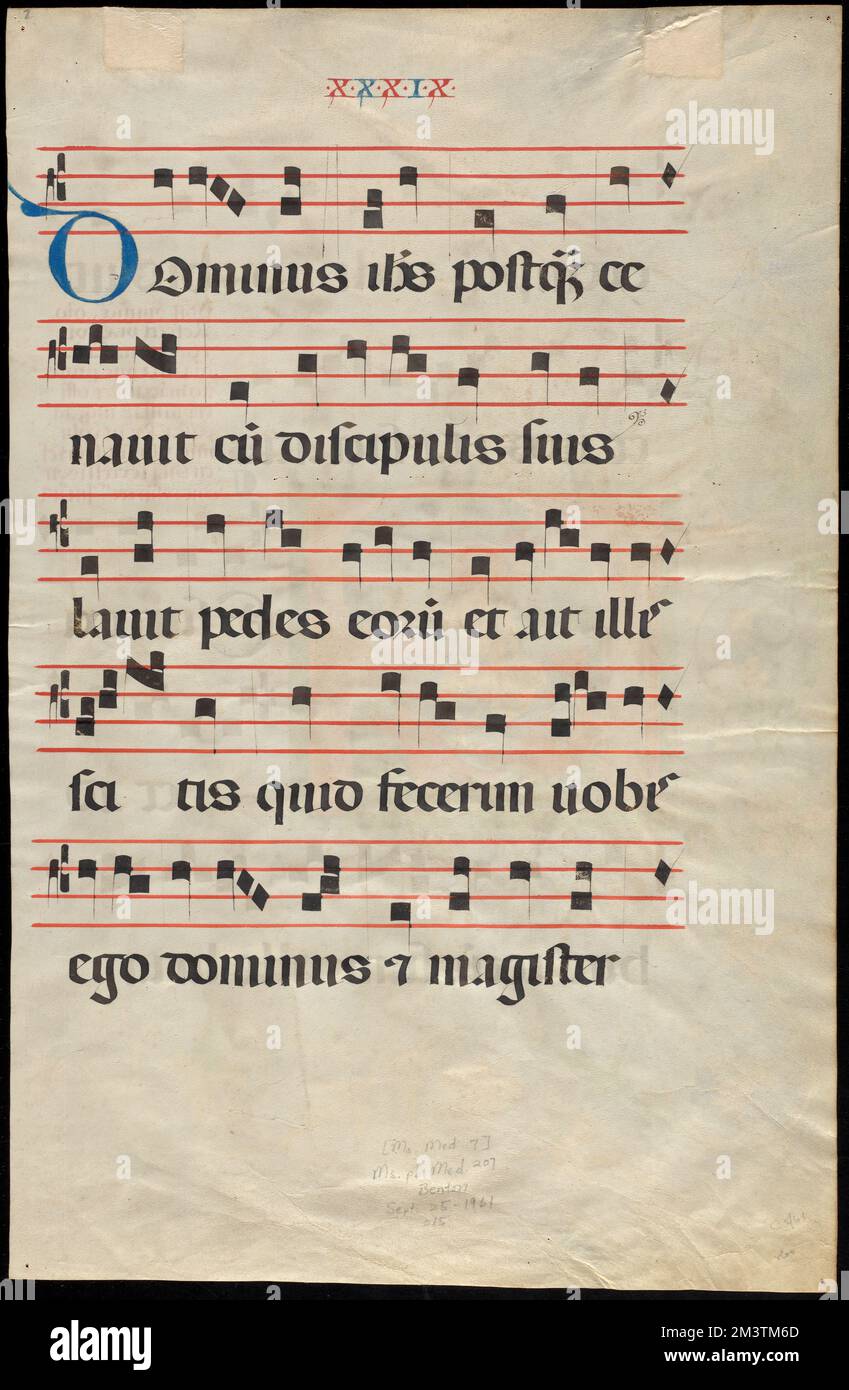 XXXIX
DOminus ihs̄ postq̄ꝫ ce
navit cū discipulis suis
lavit pedes eorū et ait illis
sci tis quid fecerim vobis
ego dominus ⁊ magister
[Ms. Med 7]
Ms. pf. Med. 207
Benton
Sept. 25-1961
015
alamy
Image ID: 2M3TM6D
www.alamy.com